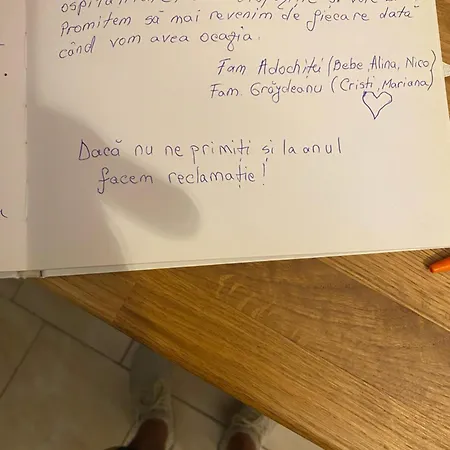 Promitem să mai revenim de fiecare dată
când vom avea ocazia.
Fam Adochiței (Bebe, Alina, Nico)
Fam. Grăjdeanu (Cristi, Mariana)
Dacă nu ne primiți și la anul
facem reclamație!